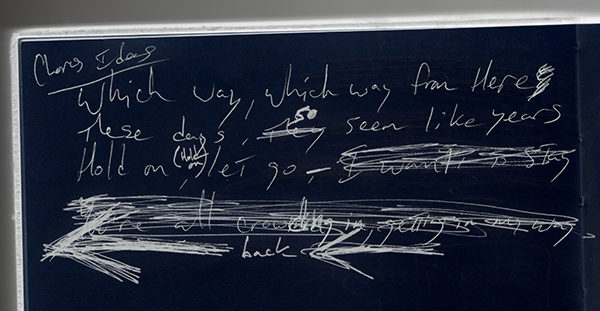 Chorus Ideas
Which way, which way from Here
These days, they 50 seem like years
Hold on, (Hold on) let go, – I want to stay
There all crowding in, getting in my way
back